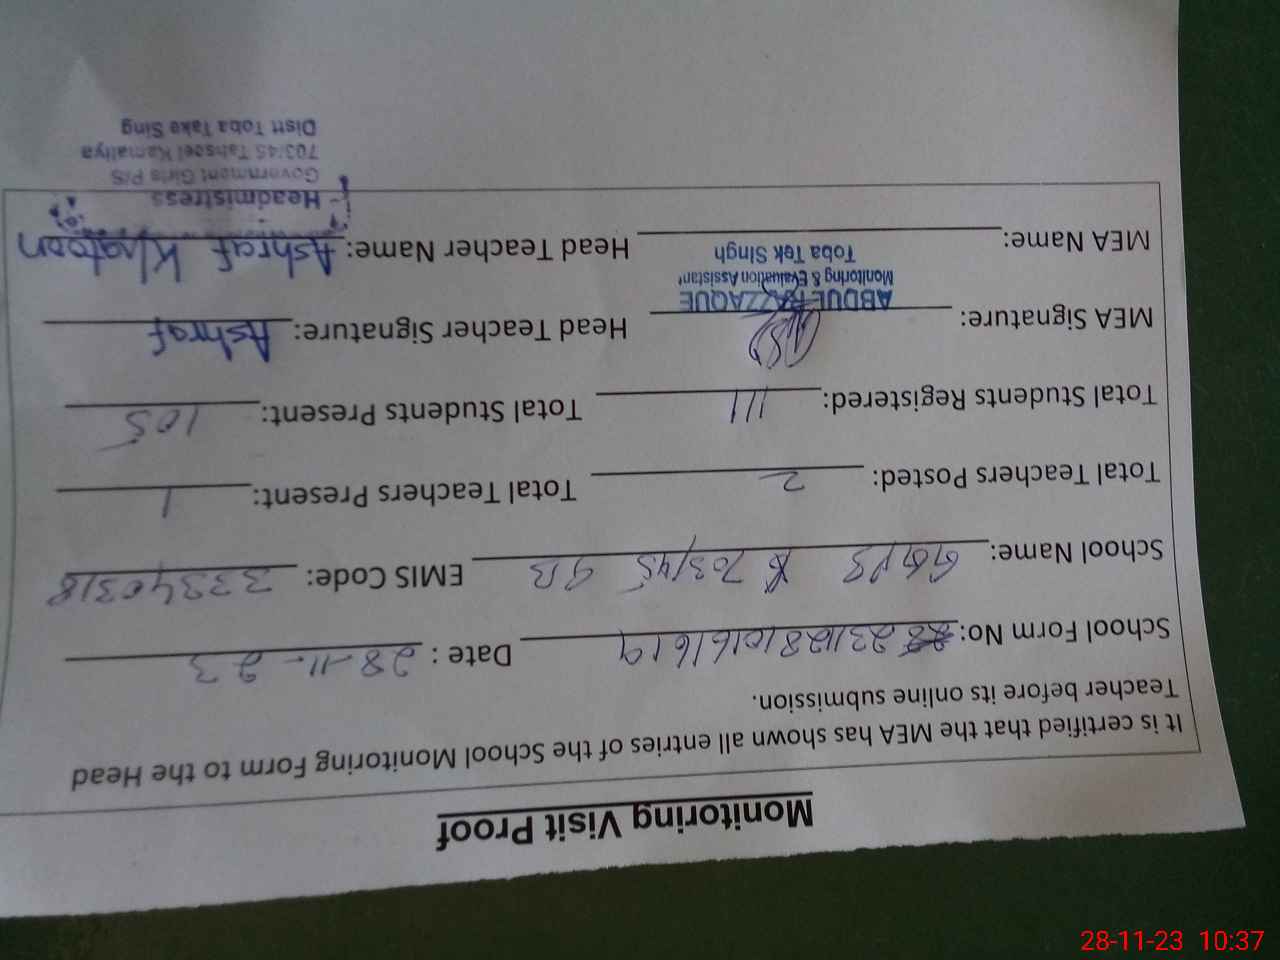 Monitoring Visit Proof
It is certified that the MEA has shown all entries of the School Monitoring Form to the Head
Teacher before its online submission.
School Form No: 23112810161619 Date : 28-11-23
School Name: GGPS 703/45 GB EMIS Code: 33340318
Total Teachers Posted: 2 Total Teachers Present: 1
Total Students Registered: 111 Total Students Present: 105
MEA Signature: Head Teacher Signature: Ashraf
ABDUL RAZZAQUE
Monitoring & Evaluation Assistant
Toba Tek Singh
MEA Name: Head Teacher Name: Ashraf Khatoon
Headmistress
Government Girls P/S
703/45 Tahseel Kamaliya
Distt Toba Take Sing
28-11-23 10:37